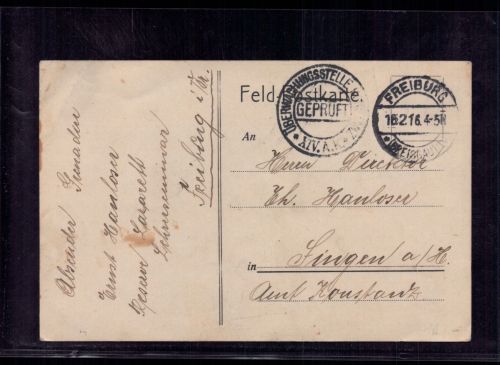 Feld-Postkarte.
ÜBERWACHUNGSSTELLE
GEPRÜFT
XIV. A.K.
FREIBURG
16.2.16. 4-5N
(BREISGAU)
An
Herrn Direktor
Th. Hanloser
in
Singen a/H.
Amt Konstanz
Absender Grenadier
Ernst Hanloser
Reserve Lazarett
Lehrerseminar
Freiburg i/Br.